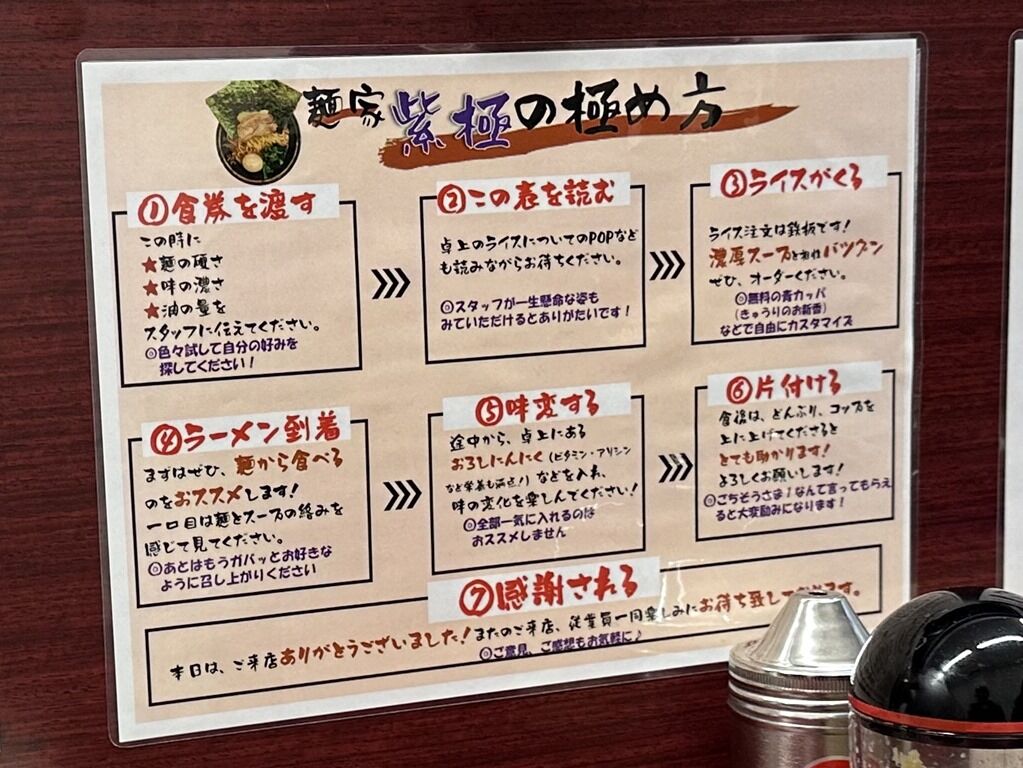 麺家 紫極の極め方
①食券を渡す
この時に
★麺の硬さ
★味の濃さ
★油の量を
スタッフに伝えてください。
◎色々試して自分の好みを
探してください！
②この表を読む
卓上のライスについてのPOPなど
も読みながらお待ちください。
◎スタッフが一生懸命な姿も
みていただけるとありがたいです！
③ライスがくる
ライス注文は鉄板です！
濃厚スープと相性バツグン
ぜひ、オーダーください。
◎無料の青カッパ
（きゅうりのお新香）
などで自由にカスタマイズ
④ラーメン到着
まずはぜひ、麺から食べる
のをおススメします！
一口目は麺とスープの絡みを
感じて見てください。
◎あとはもうガバッとお好きな
ように召し上がりください
⑤味変する
途中から、卓上にある
おろしにんにく（ビタミン・アリシン
など栄養も満点！）などを入れ、
味の変化を楽しんでください！
◎全部一気に入れるのは
おススメしません
⑥片付ける
食後は、どんぶり、コップを
上に上げてくださると
とても助かります！
よろしくお願いします！
◎ごちそうさま！なんて言ってもらえ
ると大変励みになります！
⑦感謝される
本日は、ご来店ありがとうございました！またのご来店、従業員一同楽しみにお待ち致しております。
◎ご意見、ご感想もお気軽に♪